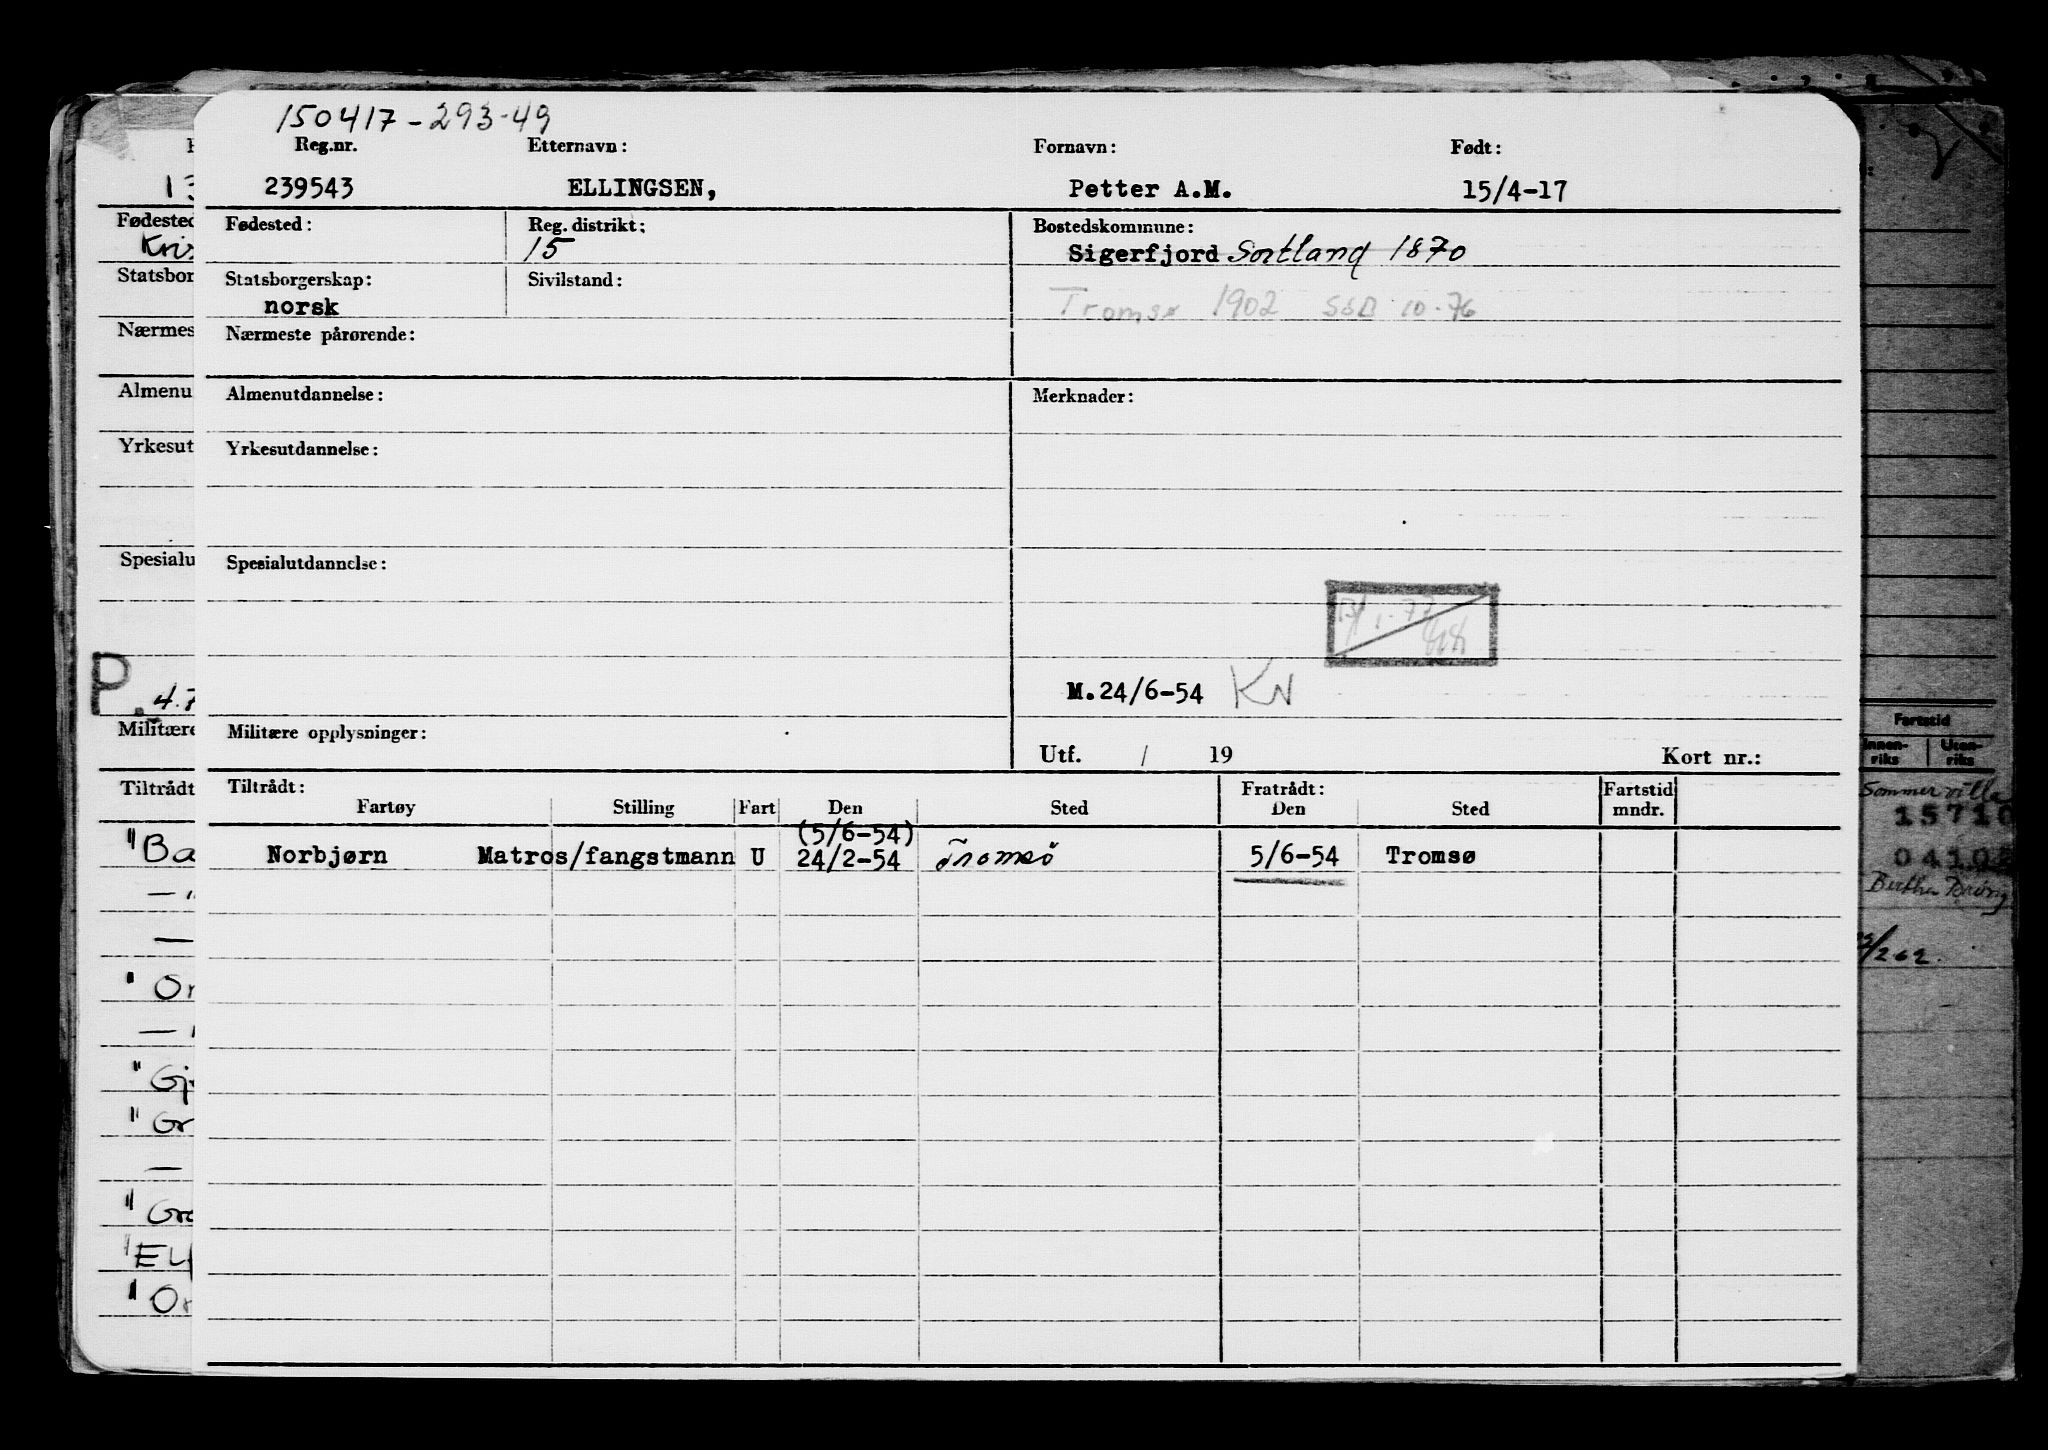 150417-293-49
Reg.nr. Etternavn: Fornavn: Født:
239543 ELLINGSEN, Petter A.M. 15/4-17
Fødested: Reg. distrikt: Bostedskommune:
15 Sigerfjord Sortland 1870
Statsborgerskap: Sivilstand:
norsk Tromsø 1902 SSB 10-76
Nærmeste pårørende:
Almenutdannelse: Merknader:
Yrkesutdannelse:
Spesialutdannelse:
M.24/6-54 KN
Militære opplysninger:
Utf. / 19 Kort nr.:
Tiltrådt: Fratrådt: Fartstid
Fartøy Stilling Fart Den Sted Den Sted mndr.
(5/6-54)
Norbjørn Matros/fangstmann U 24/2-54 Tromsö 5/6-54 Tromsø
13
Fødested
Kris
Statsbor
Nærmes
Almenu
Yrkesut
Spesialu
P. 4.7
Militære
Tiltrådt
"Ba
— "
—
" Or
— "
"Gj
"Gr
—
"Gro
"El
"Or
Fartstid
Innen-riks Uten-riks
Sommerville
15710
Bertha Brøvig
/262.